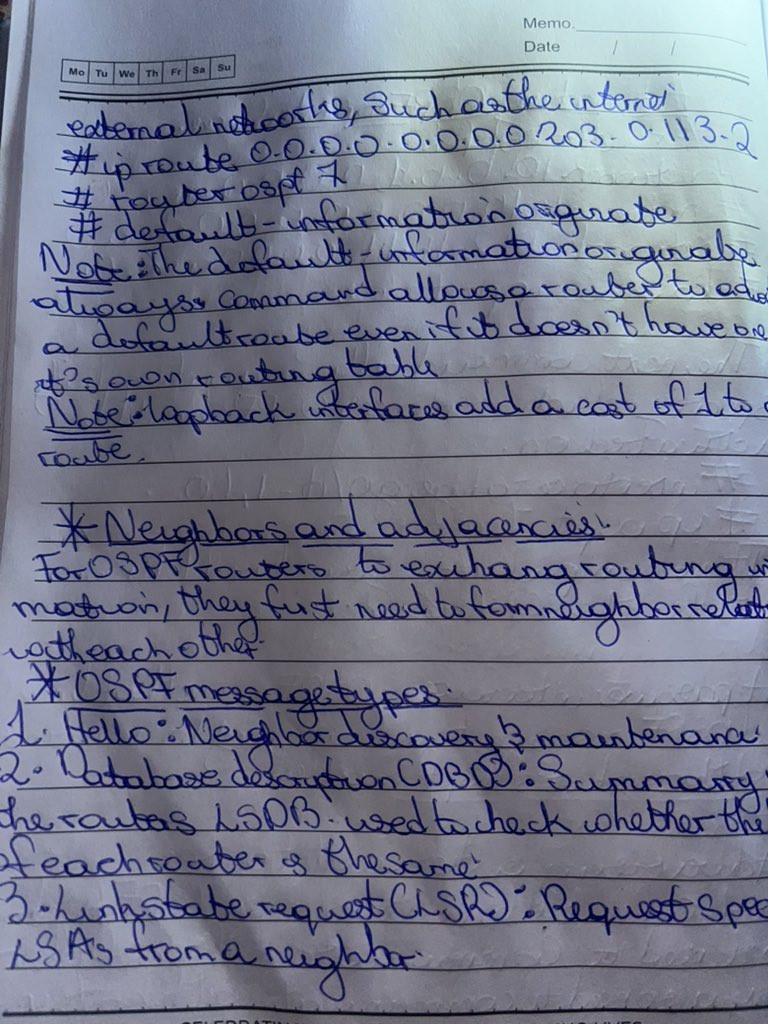 Memo.
Date / /
Mo Tu We Th Fr Sa Su
external networks, such as the internet
# ip route 0.0.0.0.0.0.0.0 203.0.113.2
# router ospf 7
# default-information originate
Note: The default-information originate
always command allows a router to adv
a default route even if it doesn't have one
it's own routing table
Note: loopback interfaces add a cost of 1 to
route.
* Neighbors and adjacencies:
For OSPF routers to exchang routing in
mation, they first need to form neighbor relat
with each other
* OSPF message types.
1. Hello: Neighbor discovery & maintenanc
2. Database description (DBD): Summary
the routers LSDB. used to check whether the
of each router is the same
3. Link state request (LSR): Request spec
LSAs from a neighbor.